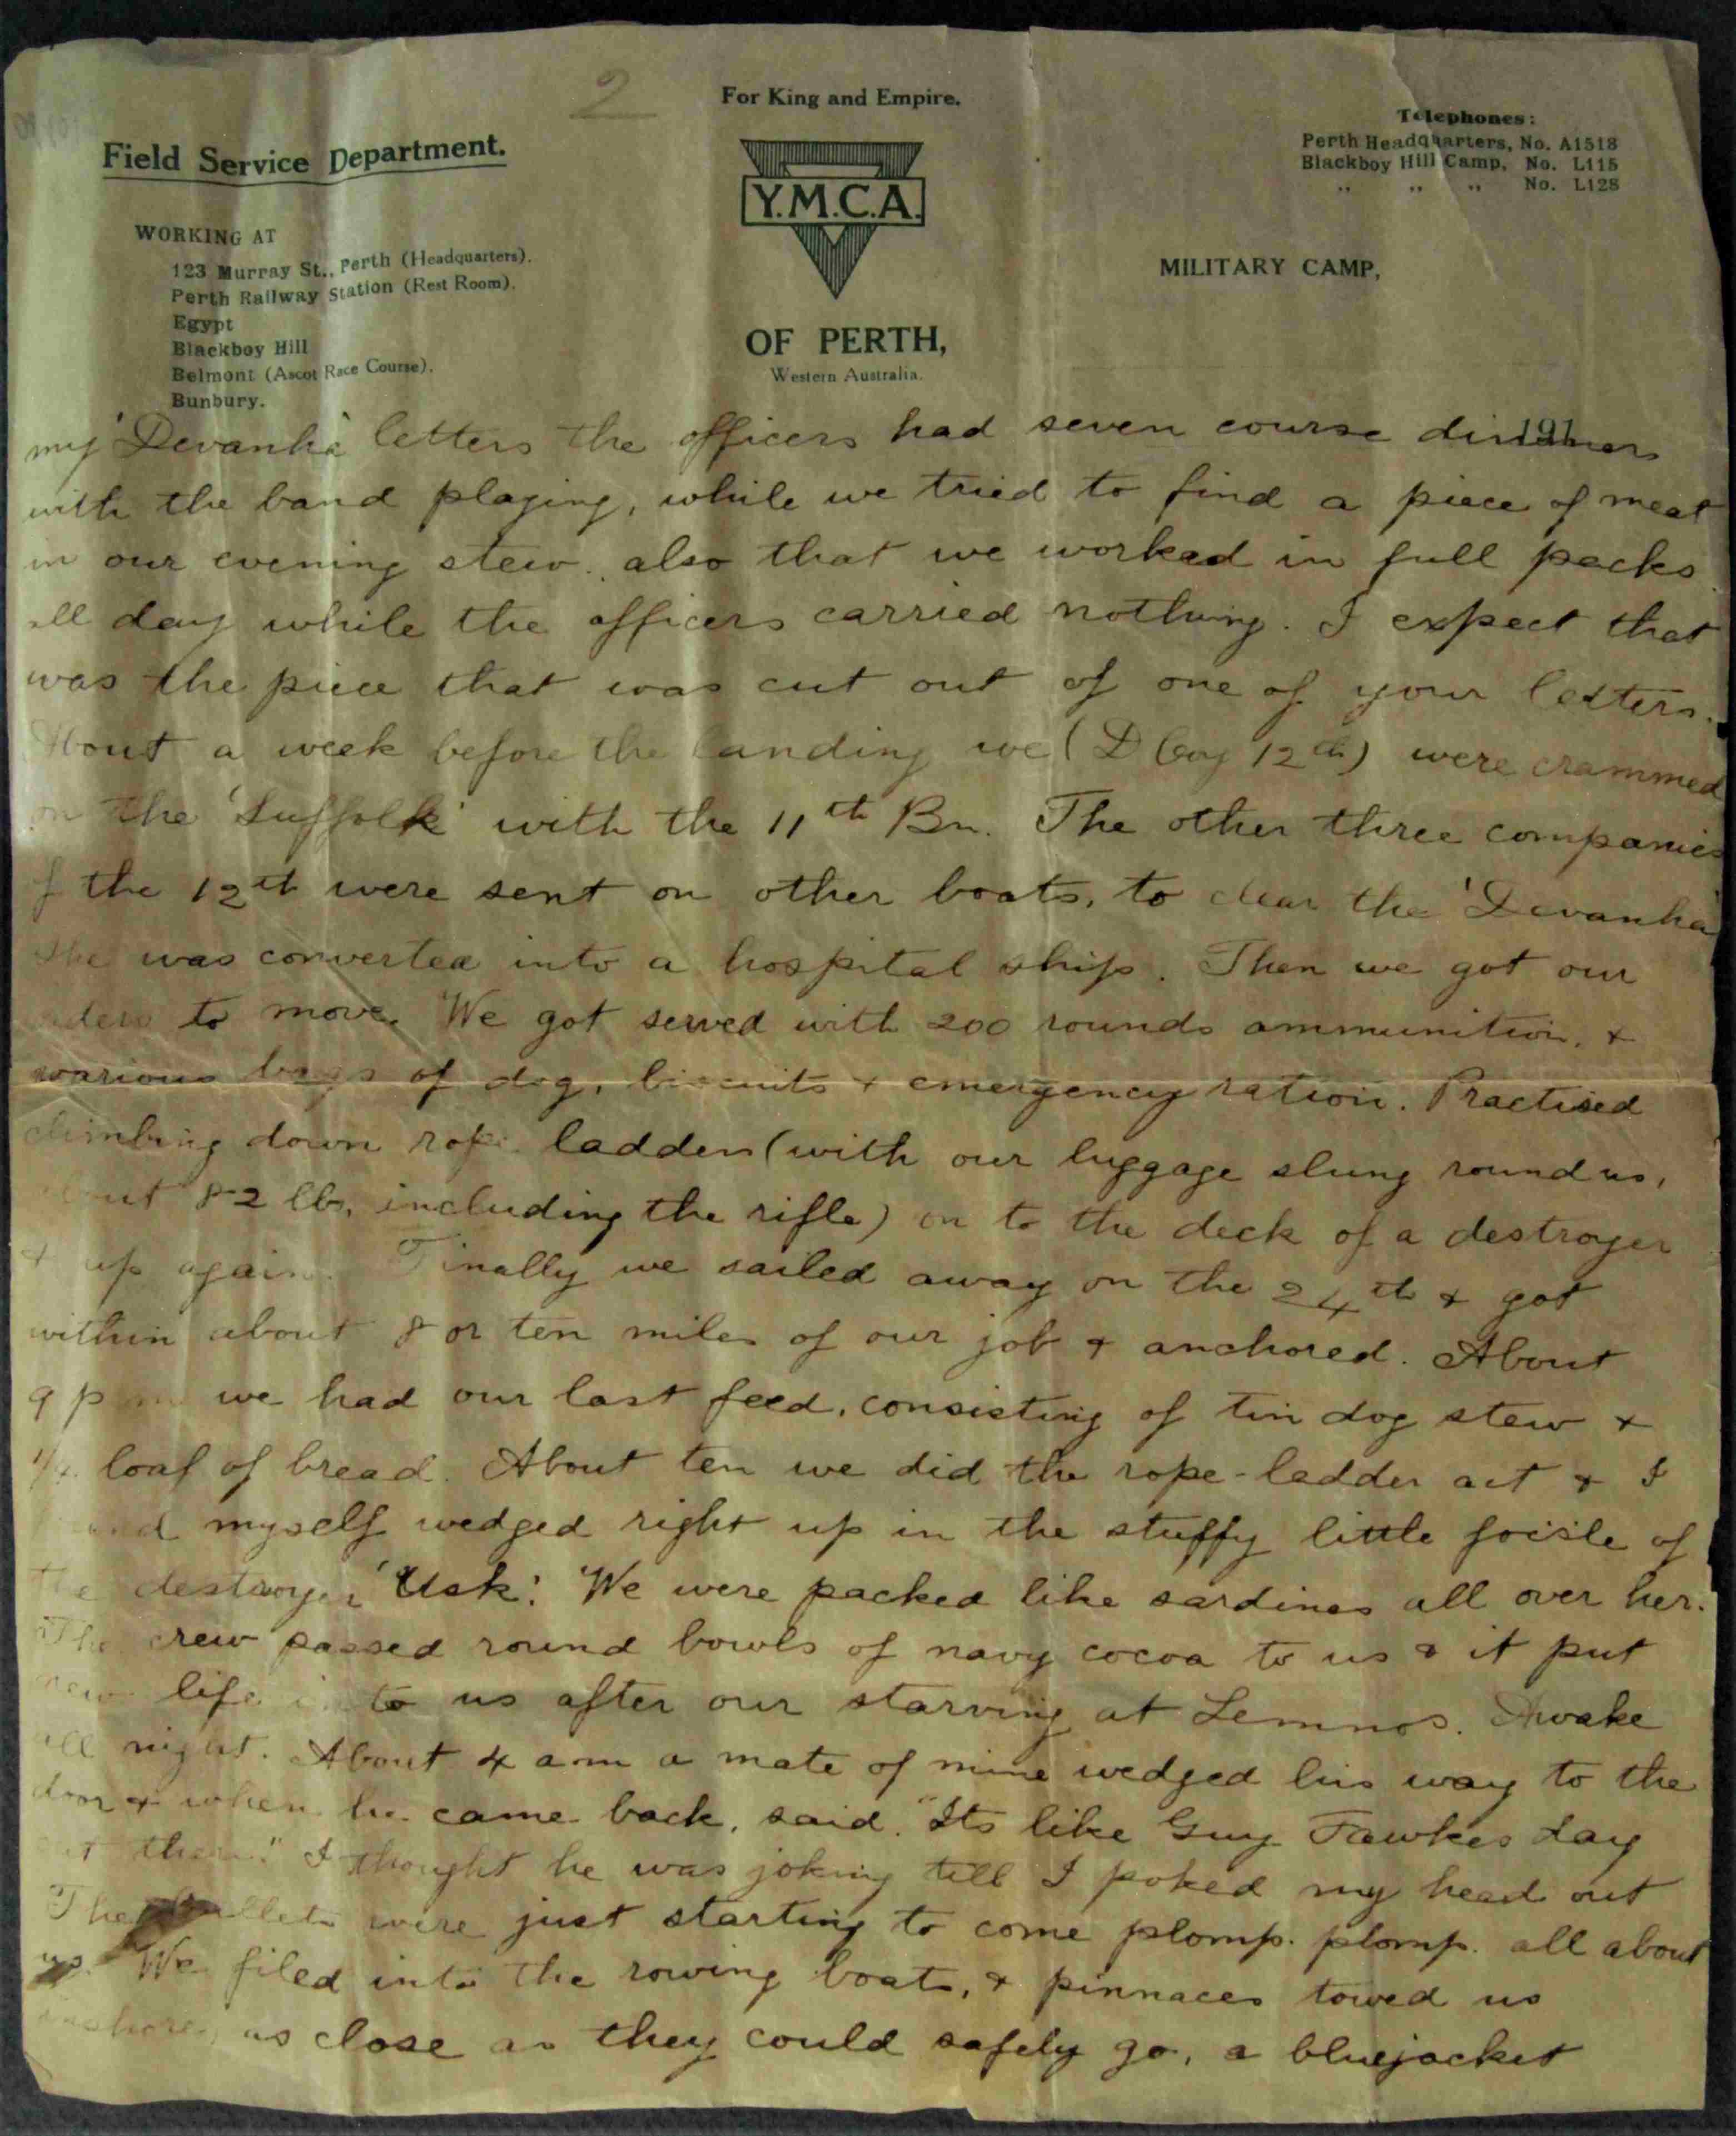 2
For King and Empire.
Field Service Department.
Telephones:
Perth Headquarters, No. A1518
Blackboy Hill Camp, No. L115
" " " No. L128
Y.M.C.A.
WORKING AT
123 Murray St., Perth (Headquarters).
Perth Railway Station (Rest Room).
Egypt
Blackboy Hill
Belmont (Ascot Race Course).
Bunbury.
MILITARY CAMP,
OF PERTH,
Western Australia.
191
my 'Devanha' letters the officers had seven course dinners
with the band playing, while we tried to find a piece of meat
in our evening stew. also that we worked in full packs
all day while the officers carried nothing. I expect that
was the piece that was cut out of one of your letters.
About a week before the landing we (D Coy 12th) were crammed
on the 'Suffolk' with the 11th Bn. The other three companies
of the 12th were sent on other boats, to clear the 'Devanha'
She was converted into a hospital ship. Then we got our
orders to move. We got served with 200 rounds ammunition, +
various bags of dog, biscuits + emergency ration. Practised
climbing down rope ladders (with our luggage slung round us,
about 82 lbs, including the rifle) on to the deck of a destroyer
+ up again. Finally we sailed away on the 24th + got
within about 8 or ten miles of our job + anchored. About
9 pm we had our last feed, consisting of tin dog stew +
1/4 loaf of bread. About ten we did the rope-ladder act + I
found myself wedged right up in the stuffy little foc'sle of
the destroyer 'Usk'. We were packed like sardines all over her.
The crew passed round bowls of navy cocoa to us & it put
new life into us after our starving at Lemnos. Awake
all night. About 4 am a mate of mine wedged his way to the
door + when he came back, said. "Its like Guy Fawkes day
out there." I thought he was joking till I poked my head out
The bullets were just starting to come plomp. plomp. all about
us. We filed into the rowing boats, + pinnaces towed us
inshore, as close as they could safely go, a bluejacket